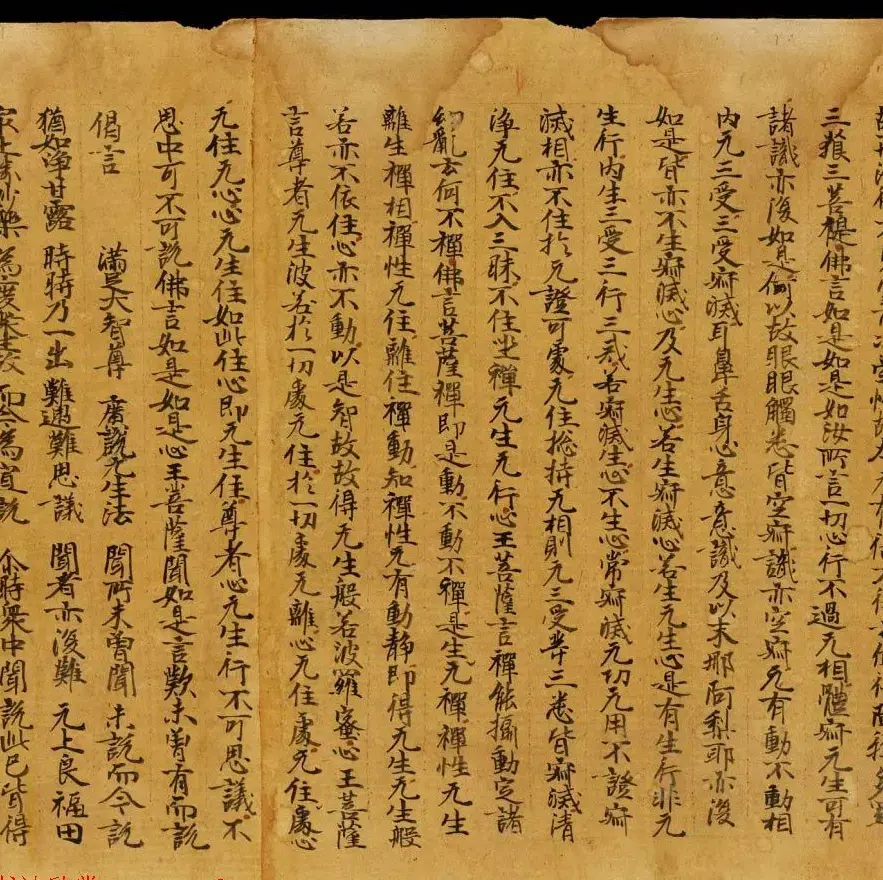 三藐三菩提佛言如是如是如汝所言一切心行不過无相體寂无生可有
諸識亦復如是何以故眼眼觸悉皆空寂識亦空寂无有動不動相
内无三受三受寂滅耳鼻舌身心意意識及以末那阿梨耶亦復
如是皆亦不生寂滅心及无生心若生寂滅心若生无生心是有生行非无
生行内生三受三行三戒若寂滅生心不生心常寂滅无功无用不證寂
滅相亦不住於无證可處无住揔持无相則无三受等三悉皆寂滅清
淨无住不入三昧不住坐禪无生无行心王菩薩言禪能攝動定諸
幻亂云何不禪佛言菩薩禪即是動不動不禪是生无禪禪性无生
離生禪相禪性无住離住禪動知禪性无有動静即得无生无生般
若亦不依住心亦不動以是智故故得无生般若波羅蜜心王菩薩
言尊者无生波若於一切處无住於一切處无離心无住處无住處心
无住无心心无生住如此住心即无生住尊者心无生行不可思議不
思中可不可説佛言如是如是心王菩薩聞如是言歎未曾有而説
偈言 滿足大智尊 廣説无生法 聞所未曾聞 未説而今説
猶如淨甘露 時時乃一出 難遇難思議 聞者亦復難 无上良福田
最上勝妙藥 為度眾生故 而今為宣説 尒時衆中聞説此已皆得